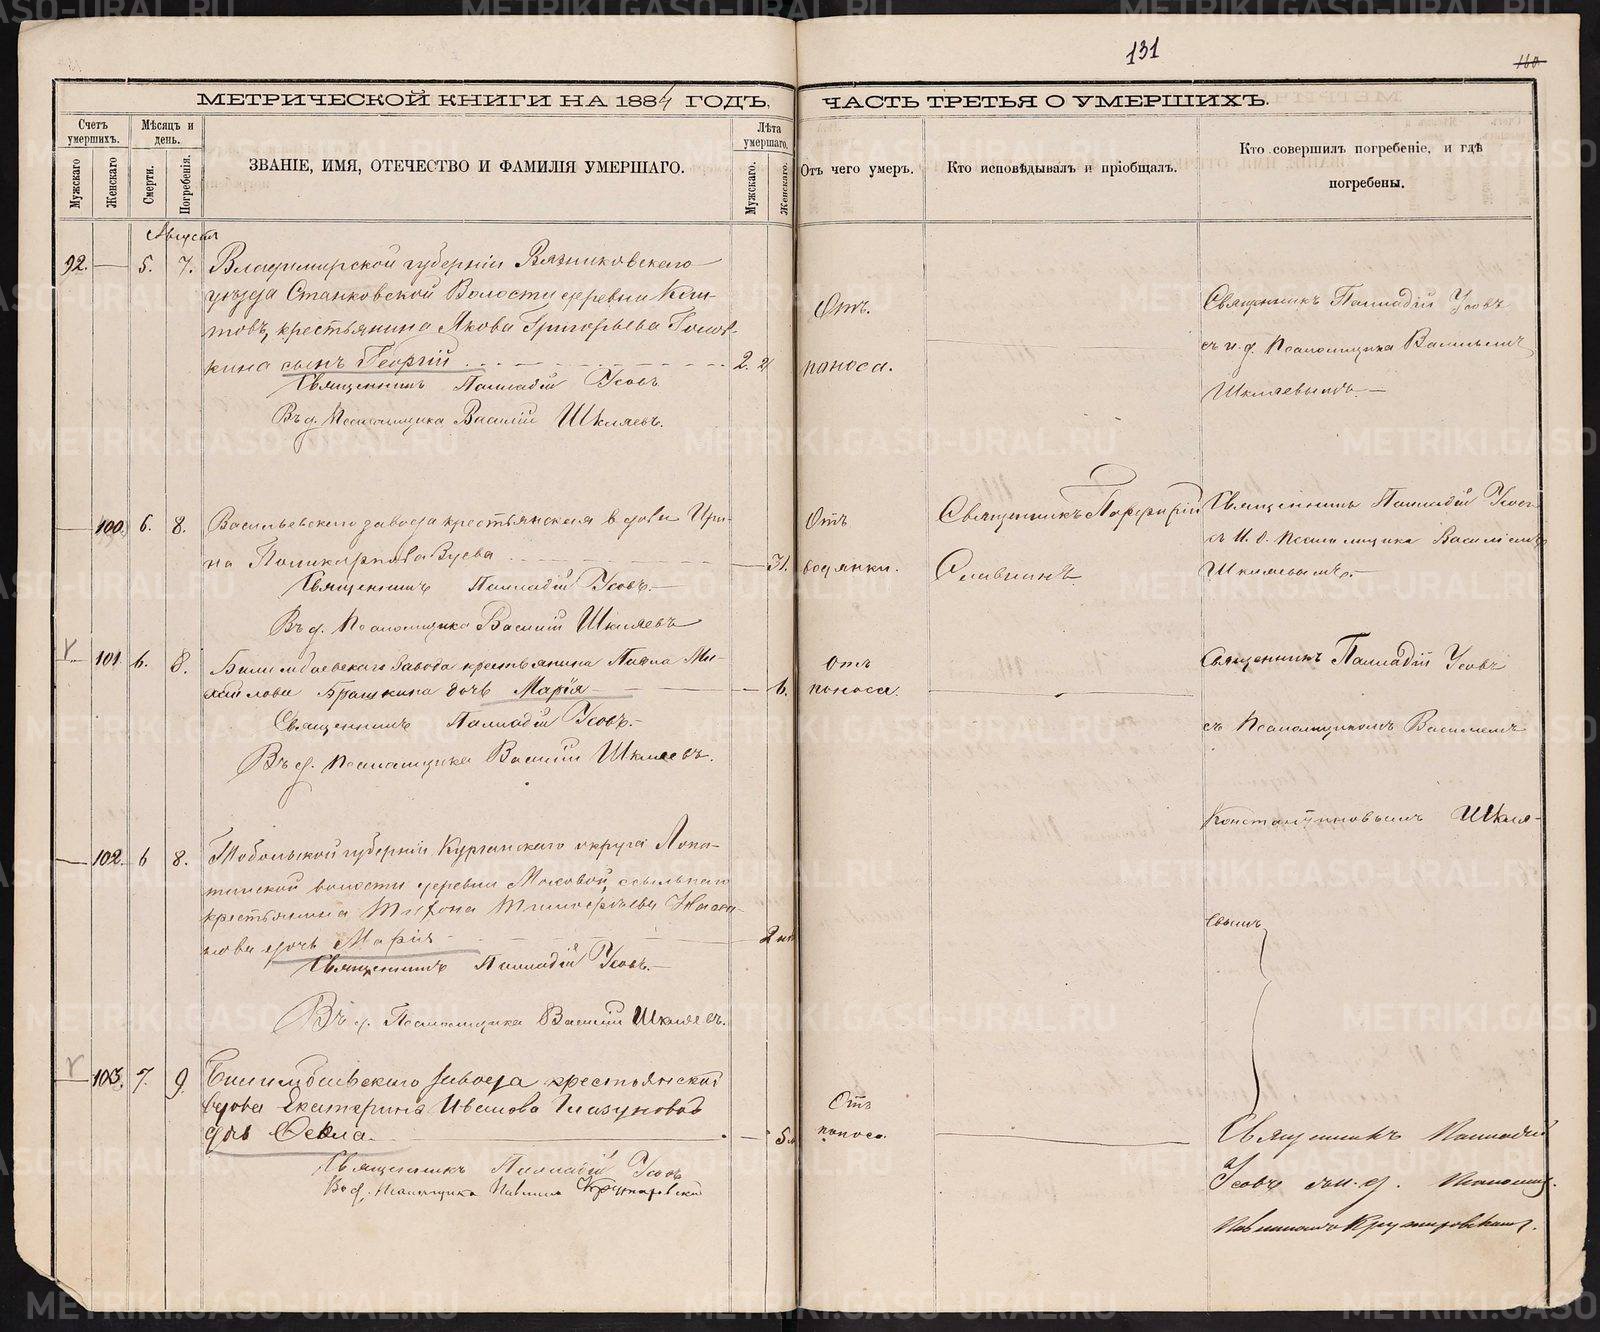 131
МЕТРИЧЕСКОЙ КНИГИ НА 1884 ГОДЪ,
ЧАСТЬ ТРЕТЬЯ О УМЕРШИХЪ.
Счетъ умершихъ.
Мужскаго
Женскаго
Мѣсяцъ и день.
Смерти.
Погребенія.
ЗВАНІЕ, ИМЯ, ОТЕЧЕСТВО И ФАМИЛІЯ УМЕРШАГО.
Лѣта умершаго.
Мужскаго.
Женскаго.
Отъ чего умеръ.
Кто исповѣдывалъ и пріобщалъ.
Кто совершилъ погребеніе, и гдѣ
погребены.
Августа
92. — 5. 7. Владимирской губерніи Вязниковскаго
уѣзда Станковской Волости деревни
крестьянина Якова Григорьева
кина сынъ Георгій 2.
Священникъ Палладій Усовъ
Въ д. Псаломщика Василій Шкляевъ.
Отъ
поноса.
Священникъ Палладій Усовъ
съ и. д. Псаломщика Василіемъ
Шкляевымъ.
— 100. 6. 8. Васильевскаго завода крестьянская вдова Ири-
на Поликарпова Зуева 71.
Священникъ Палладій Усовъ.
Въ д. Псаломщика Василій Шкляевъ
Отъ
водянки.
Священникъ Порфирій
Славнинъ
Священникъ Палладій Усовъ
съ И. д. Псаломщика Василіемъ
Шкляевымъ.
— 101 6. 8. Билимбаевскаго Завода крестьянина Павла Ми-
хайлова Брашкина дочь Марія 6.
Священникъ Палладій Усовъ.
Въ д. Псаломщика Василій Шкляевъ.
Отъ
поноса.
Священникъ Палладій Усовъ
съ Псаломщикомъ Василіемъ
Константиновымъ Шкля-
евымъ
— 102. 6 8. Тобольской губерніи Курганскаго округа Лопа-
тинской волости деревни Моховой, ссыльнаго
крестьянина Тихона Тимофеева
нова дочь Марія 2
Священникъ Палладій Усовъ.
Въ д. Псаломщика Василій Шкляевъ.
— 103. 7. 9. Билимбаевскаго Завода крестьянской
вдовы Екатерины Ивановой Глазуновой
дочь Фекла. 5
Священникъ Палладій Усовъ
Въ д. Псаломщика
Отъ
поноса.
Священникъ Палладій
Усовъ съ и. д. Псаломщ.